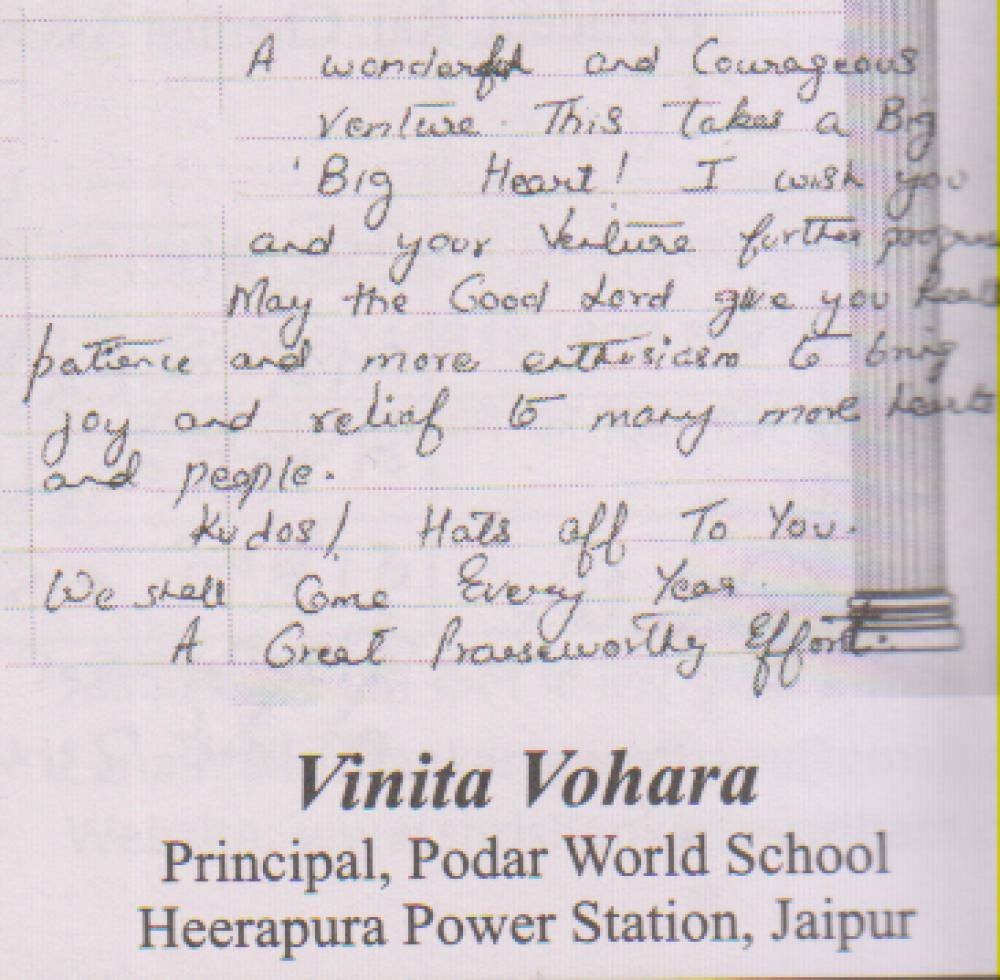 A wonderful and Courageous
Venture. This takes a Big
'Big Heart! I wish you
and your Venture further progress
May the Good Lord give you
patience and more enthusiasm to bring
joy and relief to many more hearts
and people.
Kudos! Hats off To You.
We shall Come Every Year.
A Great Praiseworthy Effort.
Vinita Vohara
Principal, Podar World School
Heerapura Power Station, Jaipur